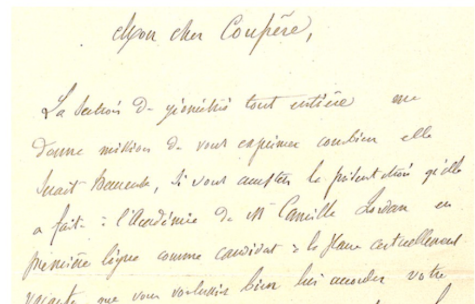 Mon cher Confrère,
La Section de géométrie tout entière me
donne mission de vous exprimer combien elle
serait heureuse, si vous acceptez la présentation qu'elle
a faite à l'Académie de Mr Camille Jordan en
première ligne comme candidat à la place actuellement
vacante, que vous voulussiez bien lui accorder votre